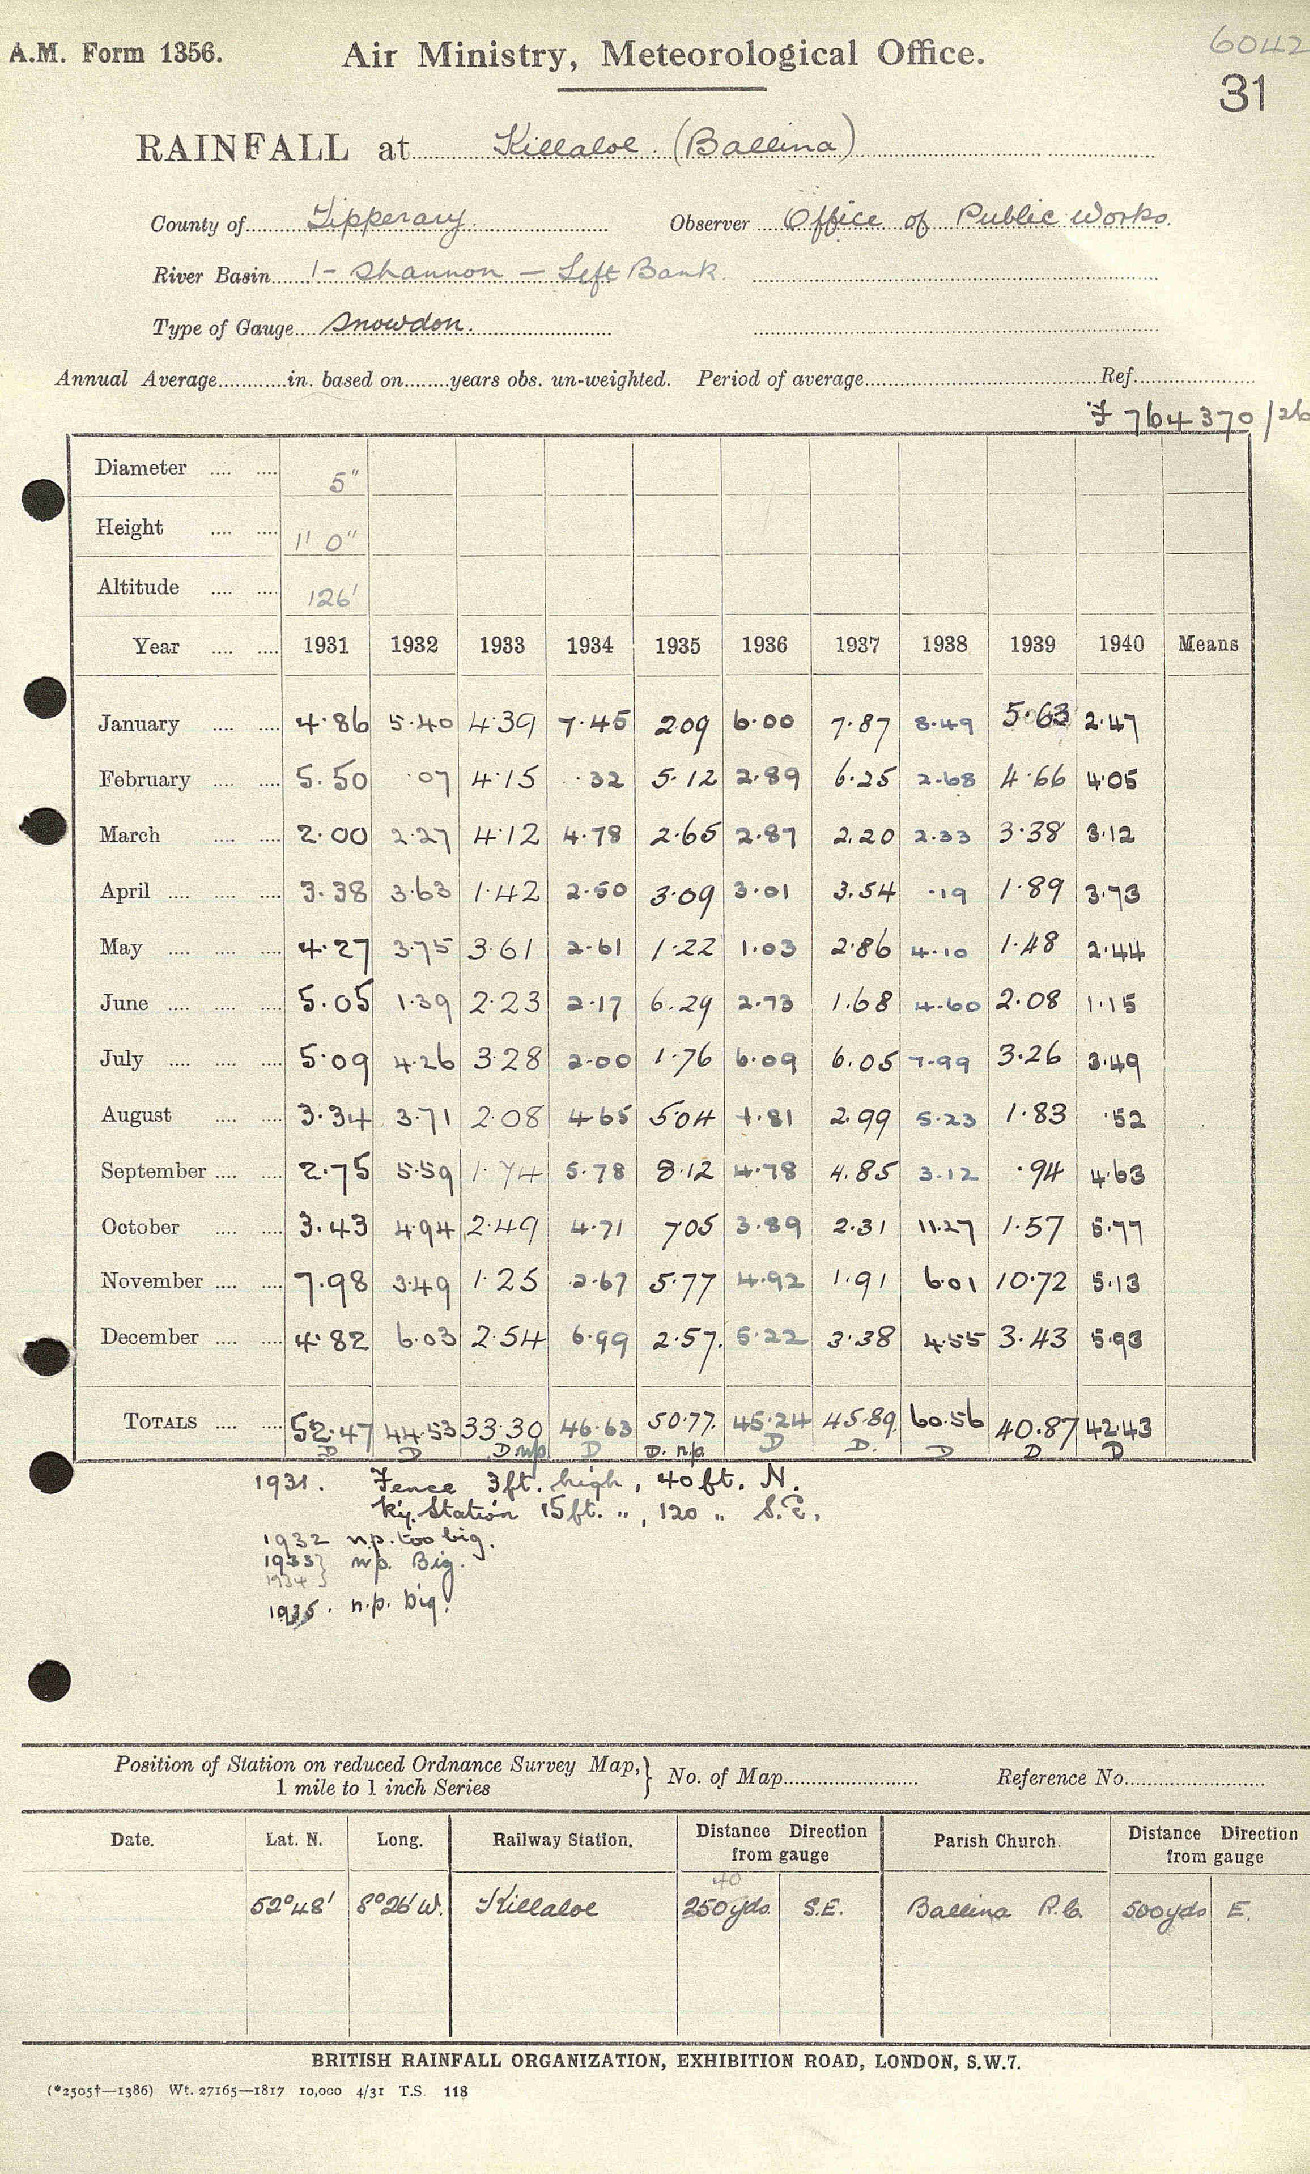 6042
A.M. Form 1356. Air Ministry, Meteorological Office.
31
RAINFALL at Killaloe. (Ballina)
County of Tipperary Observer Office of Public Works.
River Basin 1- Shannon - Left Bank.
Type of Gauge Snowdon.
Annual Average............in. based on........years obs. un-weighted. Period of average.............Ref.............
764370/26
Diameter .... .... 5"
Height .... .... 1' 0"
Altitude .... .... 126'
Year .... .... 1931 1932 1933 1934 1935 1936 1937 1938 1939 1940 Means
January .... .... 4.86 5.40 4.39 7.45 2.09 6.00 7.87 8.49 5.63 2.47
February .... .... 5.50 .07 4.15 .32 5.12 2.89 6.25 2.68 4.66 4.05
March .... .... 2.00 2.27 4.12 4.78 2.65 2.87 2.20 2.33 3.38 3.12
April .... .... .... 3.38 3.63 1.42 2.50 3.09 3.01 3.54 .19 1.89 3.73
May .... .... .... 4.27 3.75 3.61 2.61 1.22 1.03 2.86 4.10 1.48 2.44
June .... .... .... 5.05 1.39 2.23 2.17 6.29 2.73 1.68 4.60 2.08 1.15
July .... .... .... 5.09 4.26 3.28 2.00 1.76 6.09 6.05 7.99 3.26 3.49
August .... .... 3.34 3.71 2.08 4.65 5.04 1.81 2.99 5.23 1.83 .52
September .... .... 2.75 5.59 1.74 5.78 8.12 4.78 4.85 3.12 .94 4.63
October .... .... 3.43 4.94 2.49 4.71 7.05 3.89 2.31 11.27 1.57 5.77
November .... .... 7.98 3.49 1.25 2.67 5.77 4.92 1.91 6.01 10.72 5.13
December .... .... 4.82 6.03 2.54 6.99 2.57. 5.22 3.38 4.55 3.43 5.93
TOTALS .... .... 52.47 44.53 33.30 46.63 50.77. 45.24 45.89. 60.56 40.87 42.43
D D D n/p D D. n.p. D D. D D D
1931. Fence 3ft. high, 40 ft. N.
Ry. Station 15ft. ", 120 " S.E.
1932 n.p. too big.
1933} n/p. Big.
1934}
1935. n.p. big.
Position of Station on reduced Ordnance Survey Map,} No. of Map............ Reference No............
1 mile to 1 inch Series
Date. Lat. N. Long. Railway Station. Distance Direction from gauge Parish Church. Distance Direction from gauge
40
52°48' 8°26'W. Killaloe 250yds. S.E. Ballina R.C. 500yds E.
BRITISH RAINFALL ORGANIZATION, EXHIBITION ROAD, LONDON, S.W.7.
(*2505†—1386) Wt. 27165—1817 10,000 4/31 T.S. 118